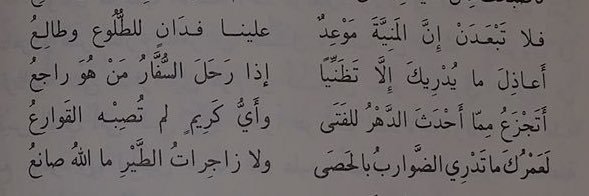 فلا تَبْعَدَنْ إِنَّ المَنِيَّةَ مَوْعِدٌ علينـا فـدَانٍ للطُّلُوع وطالِـعُ
أعـاذِلَ ما يُدْرِيكَ إلَّا تَظَنِّيًا إذا رَحَلَ السُّفَّارُ مَنْ هُوَ راجعُ
أَتَجْزَعُ مِمّا أَحْدَثَ الدَّهْرُ للفَتَى وأَيُّ كَرِيمٍ لم تُصِبْـه القَوارِعُ
لَعَمْرُكَ ما تَدْرِي الضَّوارِبُ بالحَصَى ولا زاجِراتُ الطَّيْرِ ما اللهُ صانعُ